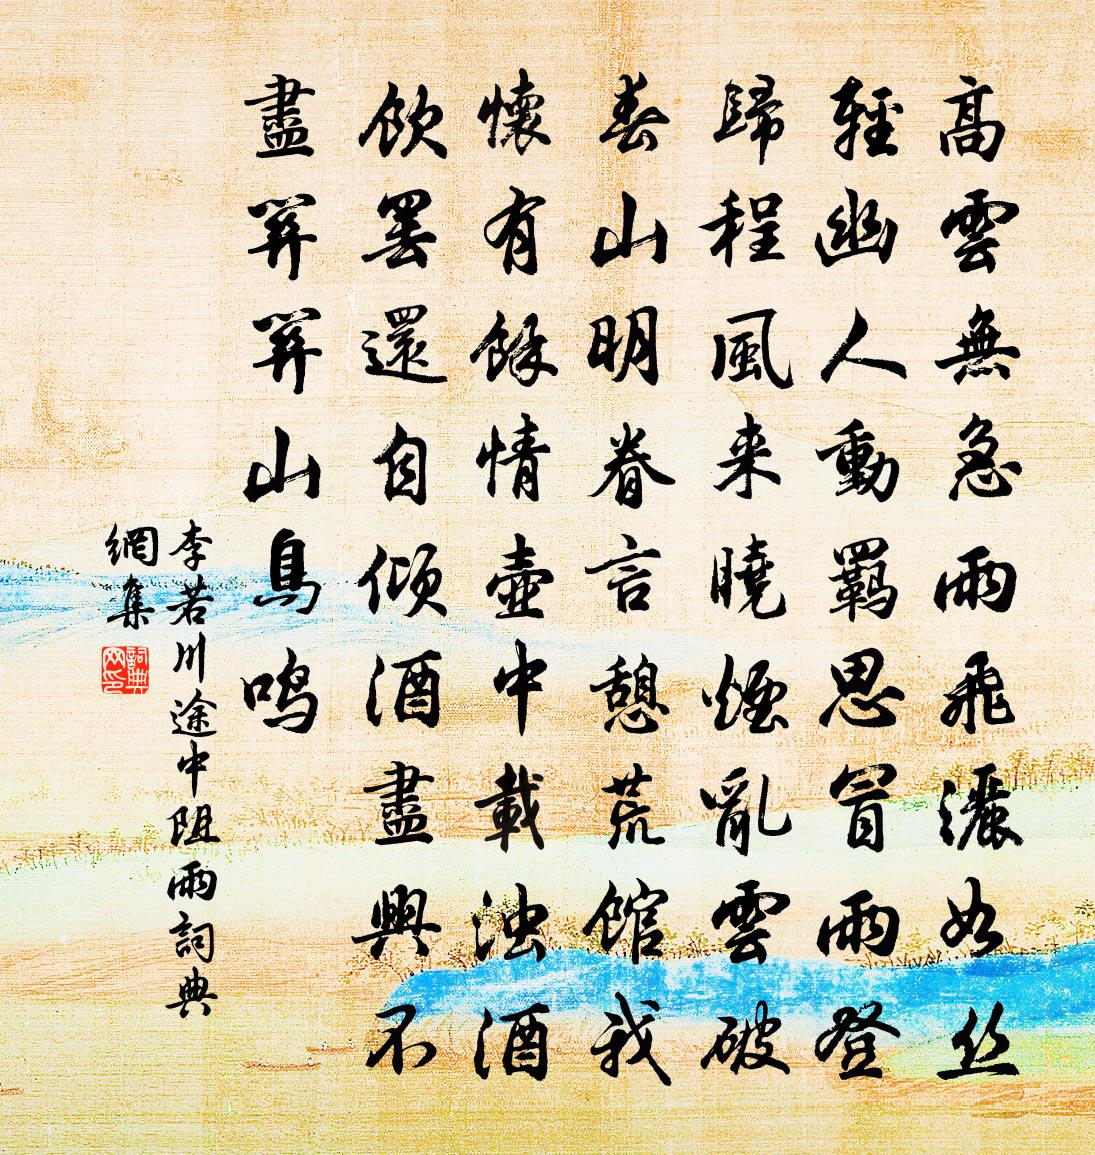 高雲無急雨飛灑如丝
輕幽人動羁思冒雨登
歸程風来曉煙亂雲破
春山明眷言憩荒館我
懷有餘情壺中載浊酒
飲罢還自倾酒盡興不
盡关关山鳥鸣
李若川途中阻雨詞典
網集
詞典
网印